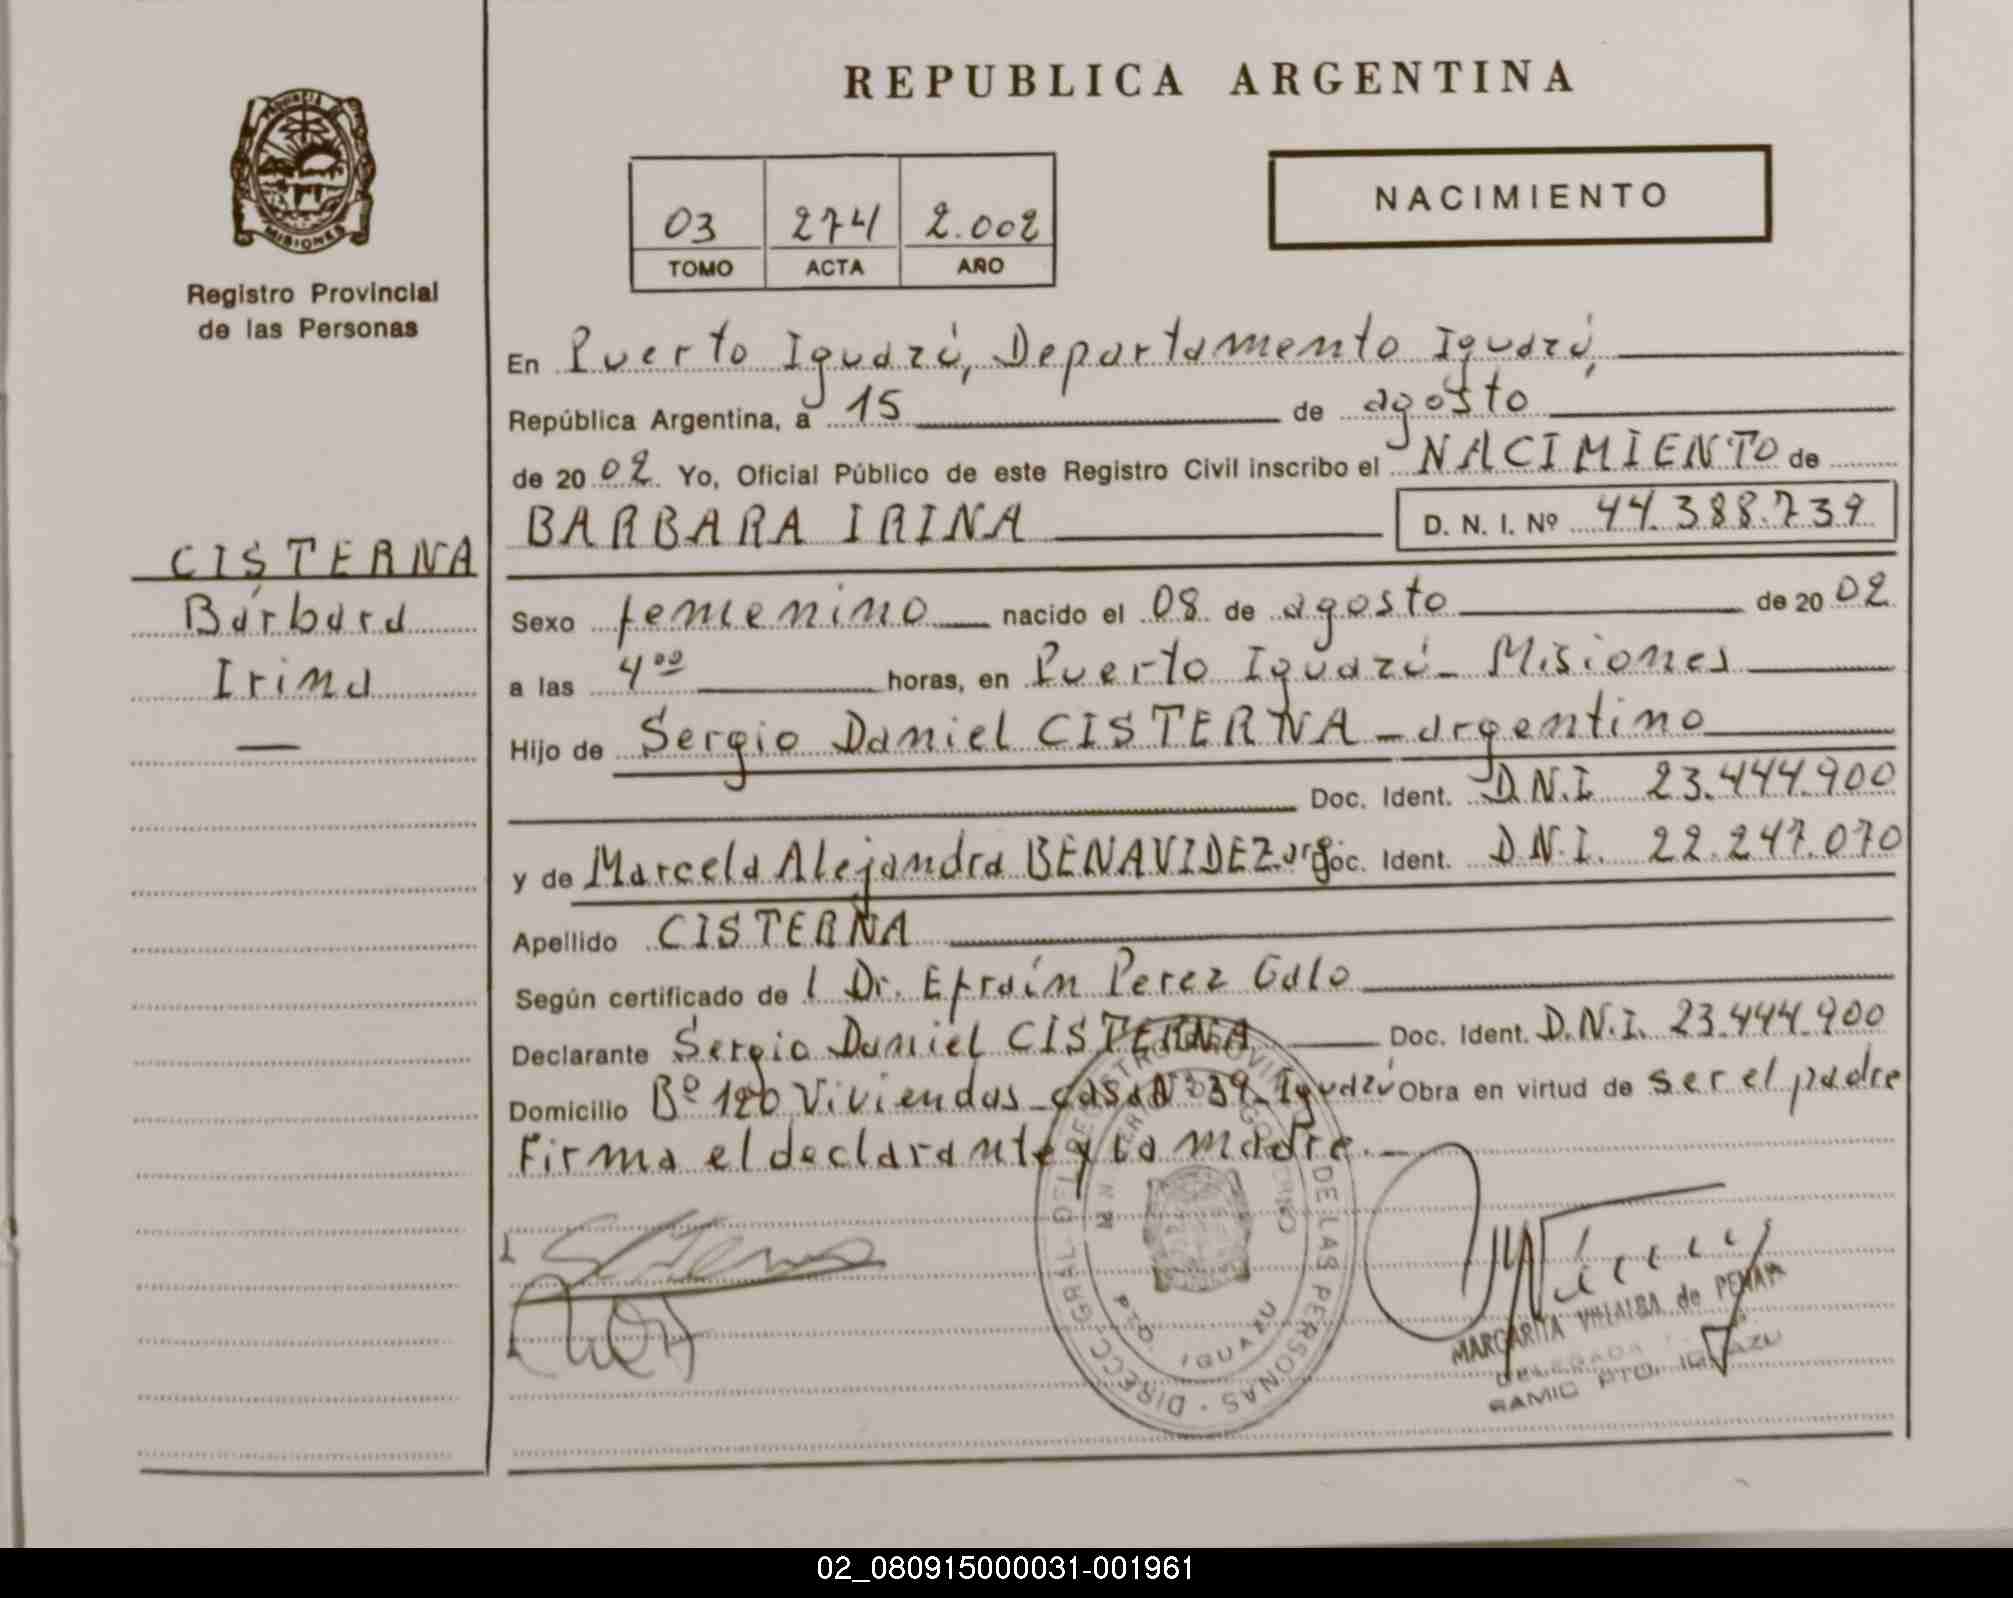 REPUBLICA ARGENTINA
NACIMIENTO
03 274 2.002
TOMO ACTA AÑO
MISIONES
Registro Provincial
de las Personas
CISTERNA
Bárbara
Irina
—
En Puerto Iguazú, Departamento Iguazú,
República Argentina, a 15 de agosto
de 2002 Yo, Oficial Público de este Registro Civil inscribo el NACIMIENTO de
BARBARA IRINA D. N. I. Nº 44.388.739
Sexo femenino nacido el 08 de agosto de 2002
a las 4 00 horas, en Puerto Iguazú - Misiones
Hijo de Sergio Daniel CISTERNA - argentino
Doc. Ident. D.N.I. 23.444.900
y de Marcela Alejandra BENAVIDEZ arg Doc. Ident. D.N.I. 22.247.070
Apellido CISTERNA
Según certificado de l Dr. Efraín Perez Galo
Declarante Sergio Daniel CISTERNA Doc. Ident. D.N.I. 23.444.900
Domicilio Bº 120 Viviendas - casa Nº 39 - Iguazú Obra en virtud de ser el padre
Firma el declarante y la madre. -
DIRECC. GRAL. DEL REGISTRO PROVINCIAL DE LAS PERSONAS
PTO. IGUAZU
MARGARITA VILLALBA de PENAR
DELEGADA
SAMIC PTO. IGUAZU
02_080915000031-001961